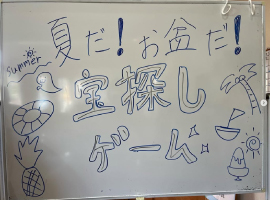 夏だ!お盆だ!
summer
宝探し
ゲーム